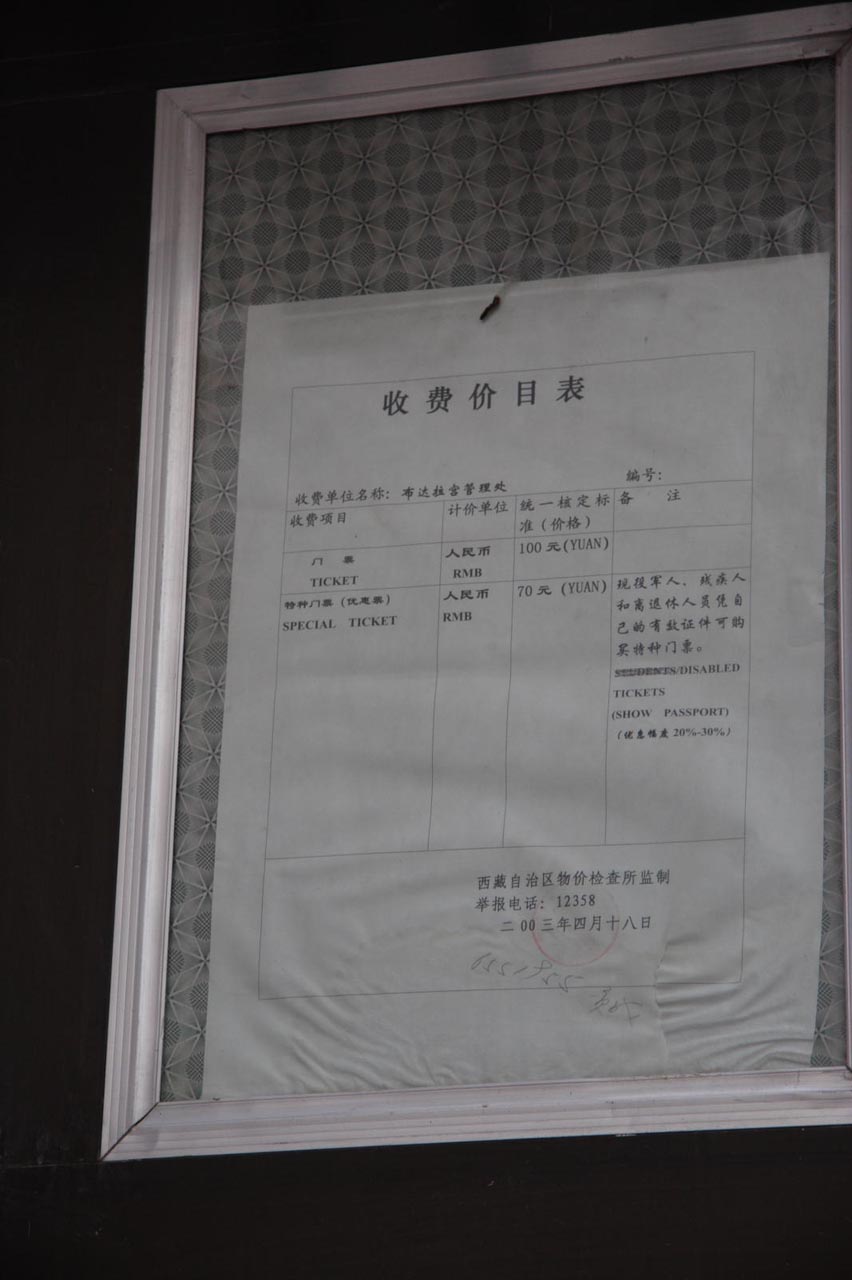 收费价目表
编号：
收费单位名称：布达拉宫管理处
收费项目
计价单位
统一核定标
准（价格）
备 注
门 票
TICKET
人民币
RMB
100 元 (YUAN)
特种门票（优惠票）
SPECIAL TICKET
人民币
RMB
70 元 (YUAN)
现役军人、残疾人
和离退休人员凭自
己的有效证件可购
买特种门票。
STUDENTS/DISABLED
TICKETS
(SHOW PASSPORT)
（优惠幅度 20%-30%）
西藏自治区物价检查所监制
举报电话：12358
二 00 三年四月十八日